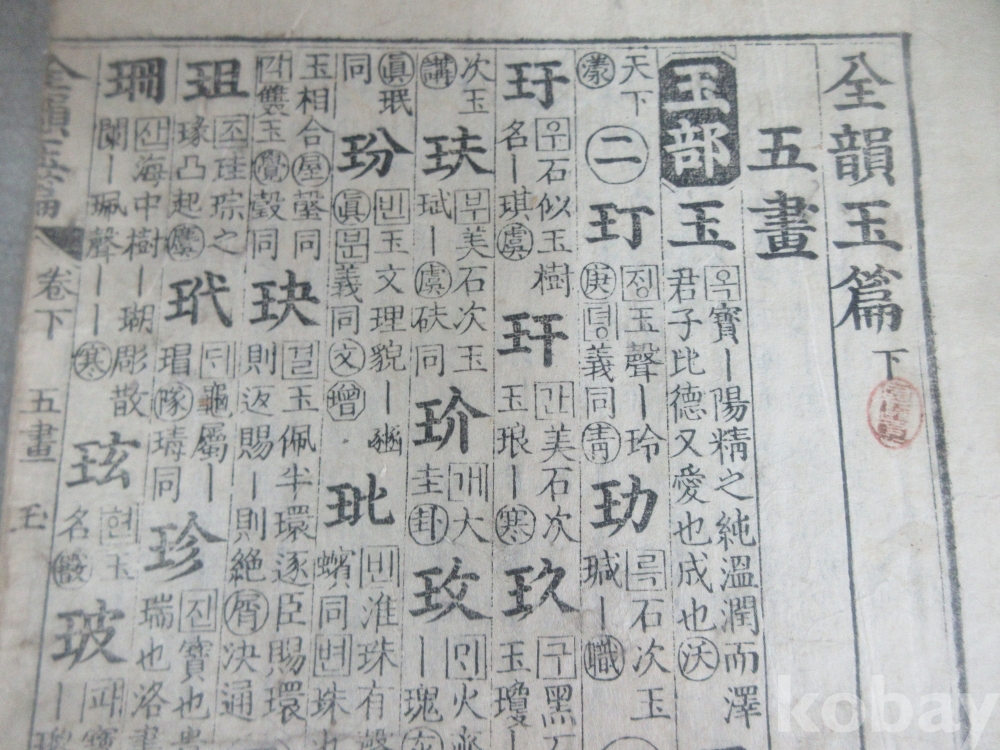 全韻玉篇 下
五畫
玉部 玉 옥 寶丨陽精之純溫潤而澤
君子比德又愛也成也 沃
天下
漾
二 玎 정 玉聲丨玲
庚 뎡 義同 靑
玏 륵 石次玉
瑊丨 職
玗 우 石似玉樹
名丨琪 虞
玕 간 美石次
玉琅丨 寒
玖 구 黑
玉瓊丨
次玉
講
玞 부 美石次玉
珷丨 虞 砆同
玠 개 大
圭 卦
玫 민 火齊
丨瑰
眞 珉
同
玢 빈 玉文理貌丨豳
眞 문 義同 文 增
玭 빈 淮珠有聲
蠙同 변 珠
玉相合 屋 瑴同
각 雙玉 覺 瑴同
玦 결 玉佩半環逐臣賜環
則返賜丨則絶 屑 决通
珇 조 珪琮之
瑑凸起 麌
玳 ᄃᆡ 龜屬丨
瑁 隊 瑇同
珍 진 寶也貴
瑞也洛書
珊 산 海中樹丨瑚彫散
闌丨珮聲丨丨 寒
玹 현 玉
名 霰
玻 파
全韻玉篇 卷下 五畫 玉
kobay